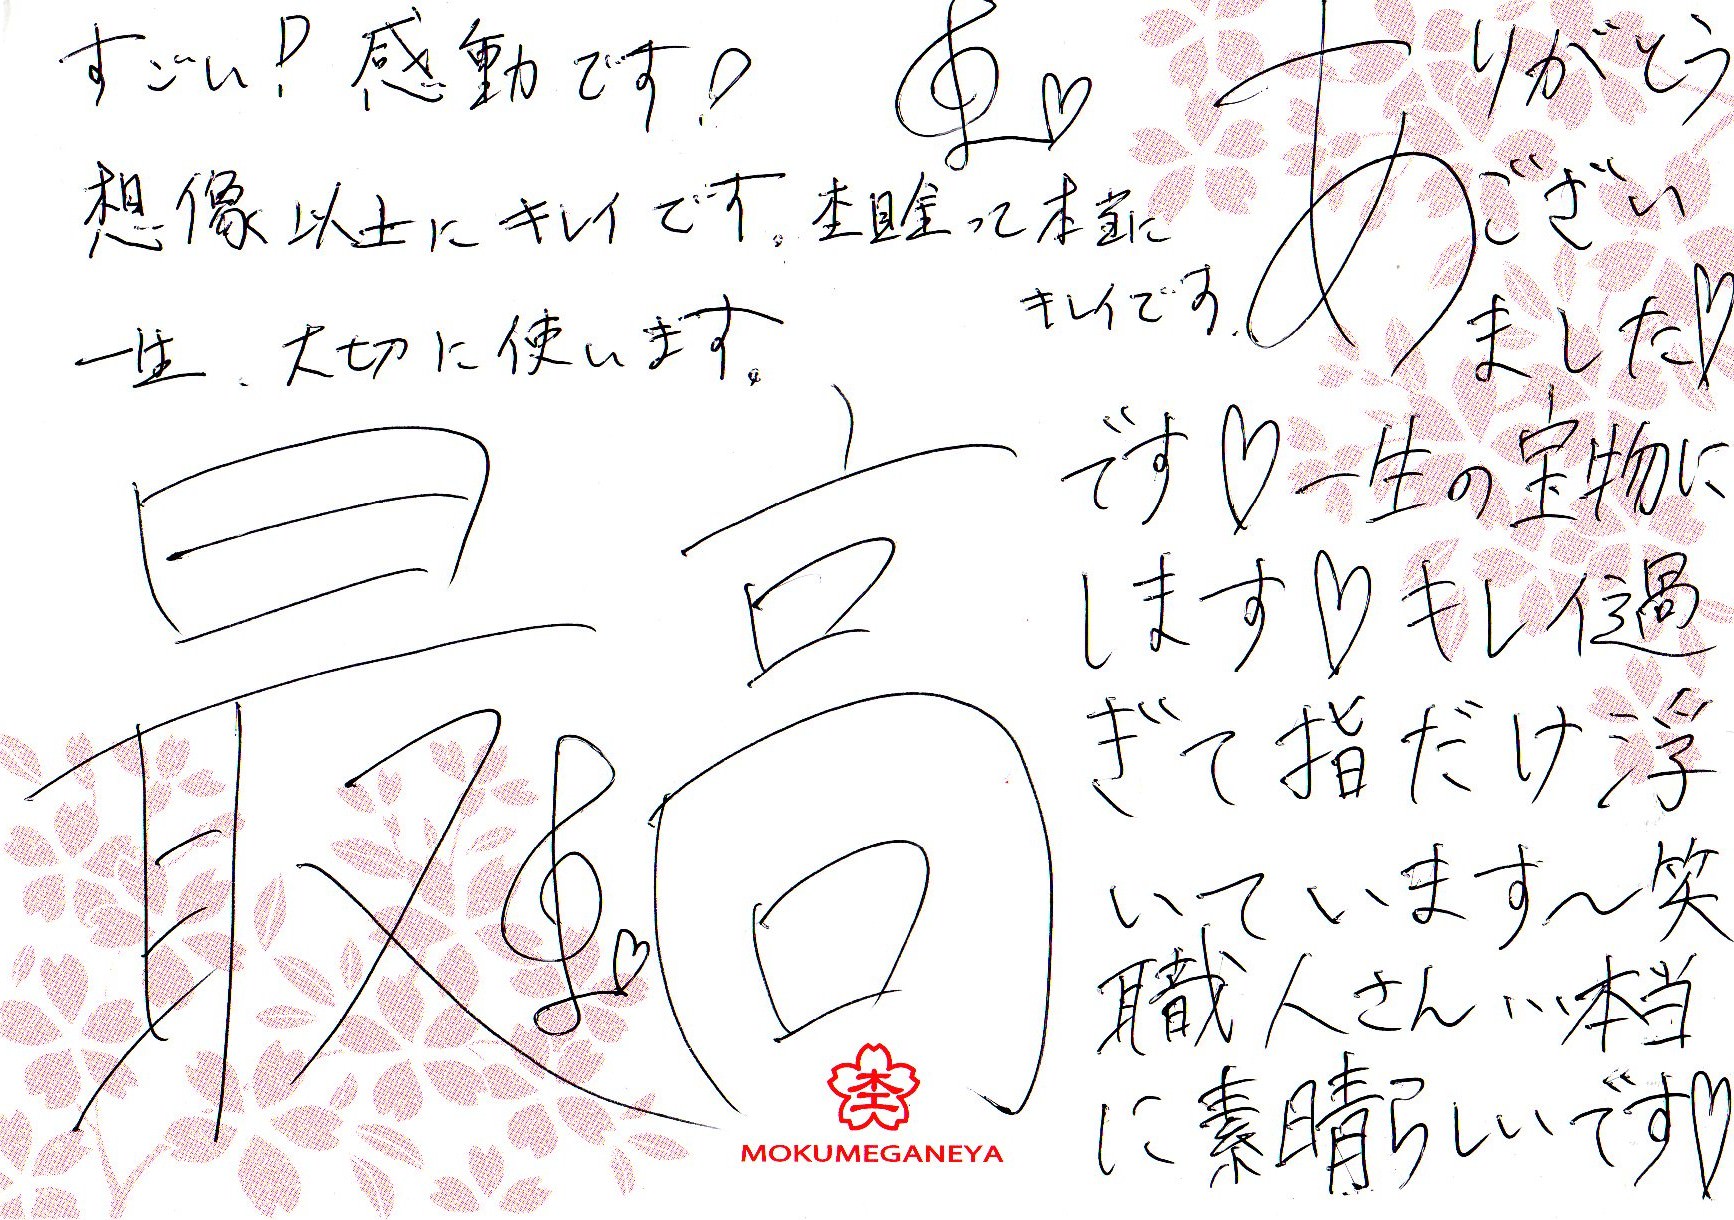 すごい！感動です！
想像以上にキレイです。杢目金って本当に
キレイです。
一生、大切に使います。
ありがとう
ござい
ました♡
最高
です♡一生の宝物に
します♡キレイ過
ぎて指だけ浮
いています〜笑
職人さん…本当
に素晴らしいです♡
杢
MOKUMEGANEYA